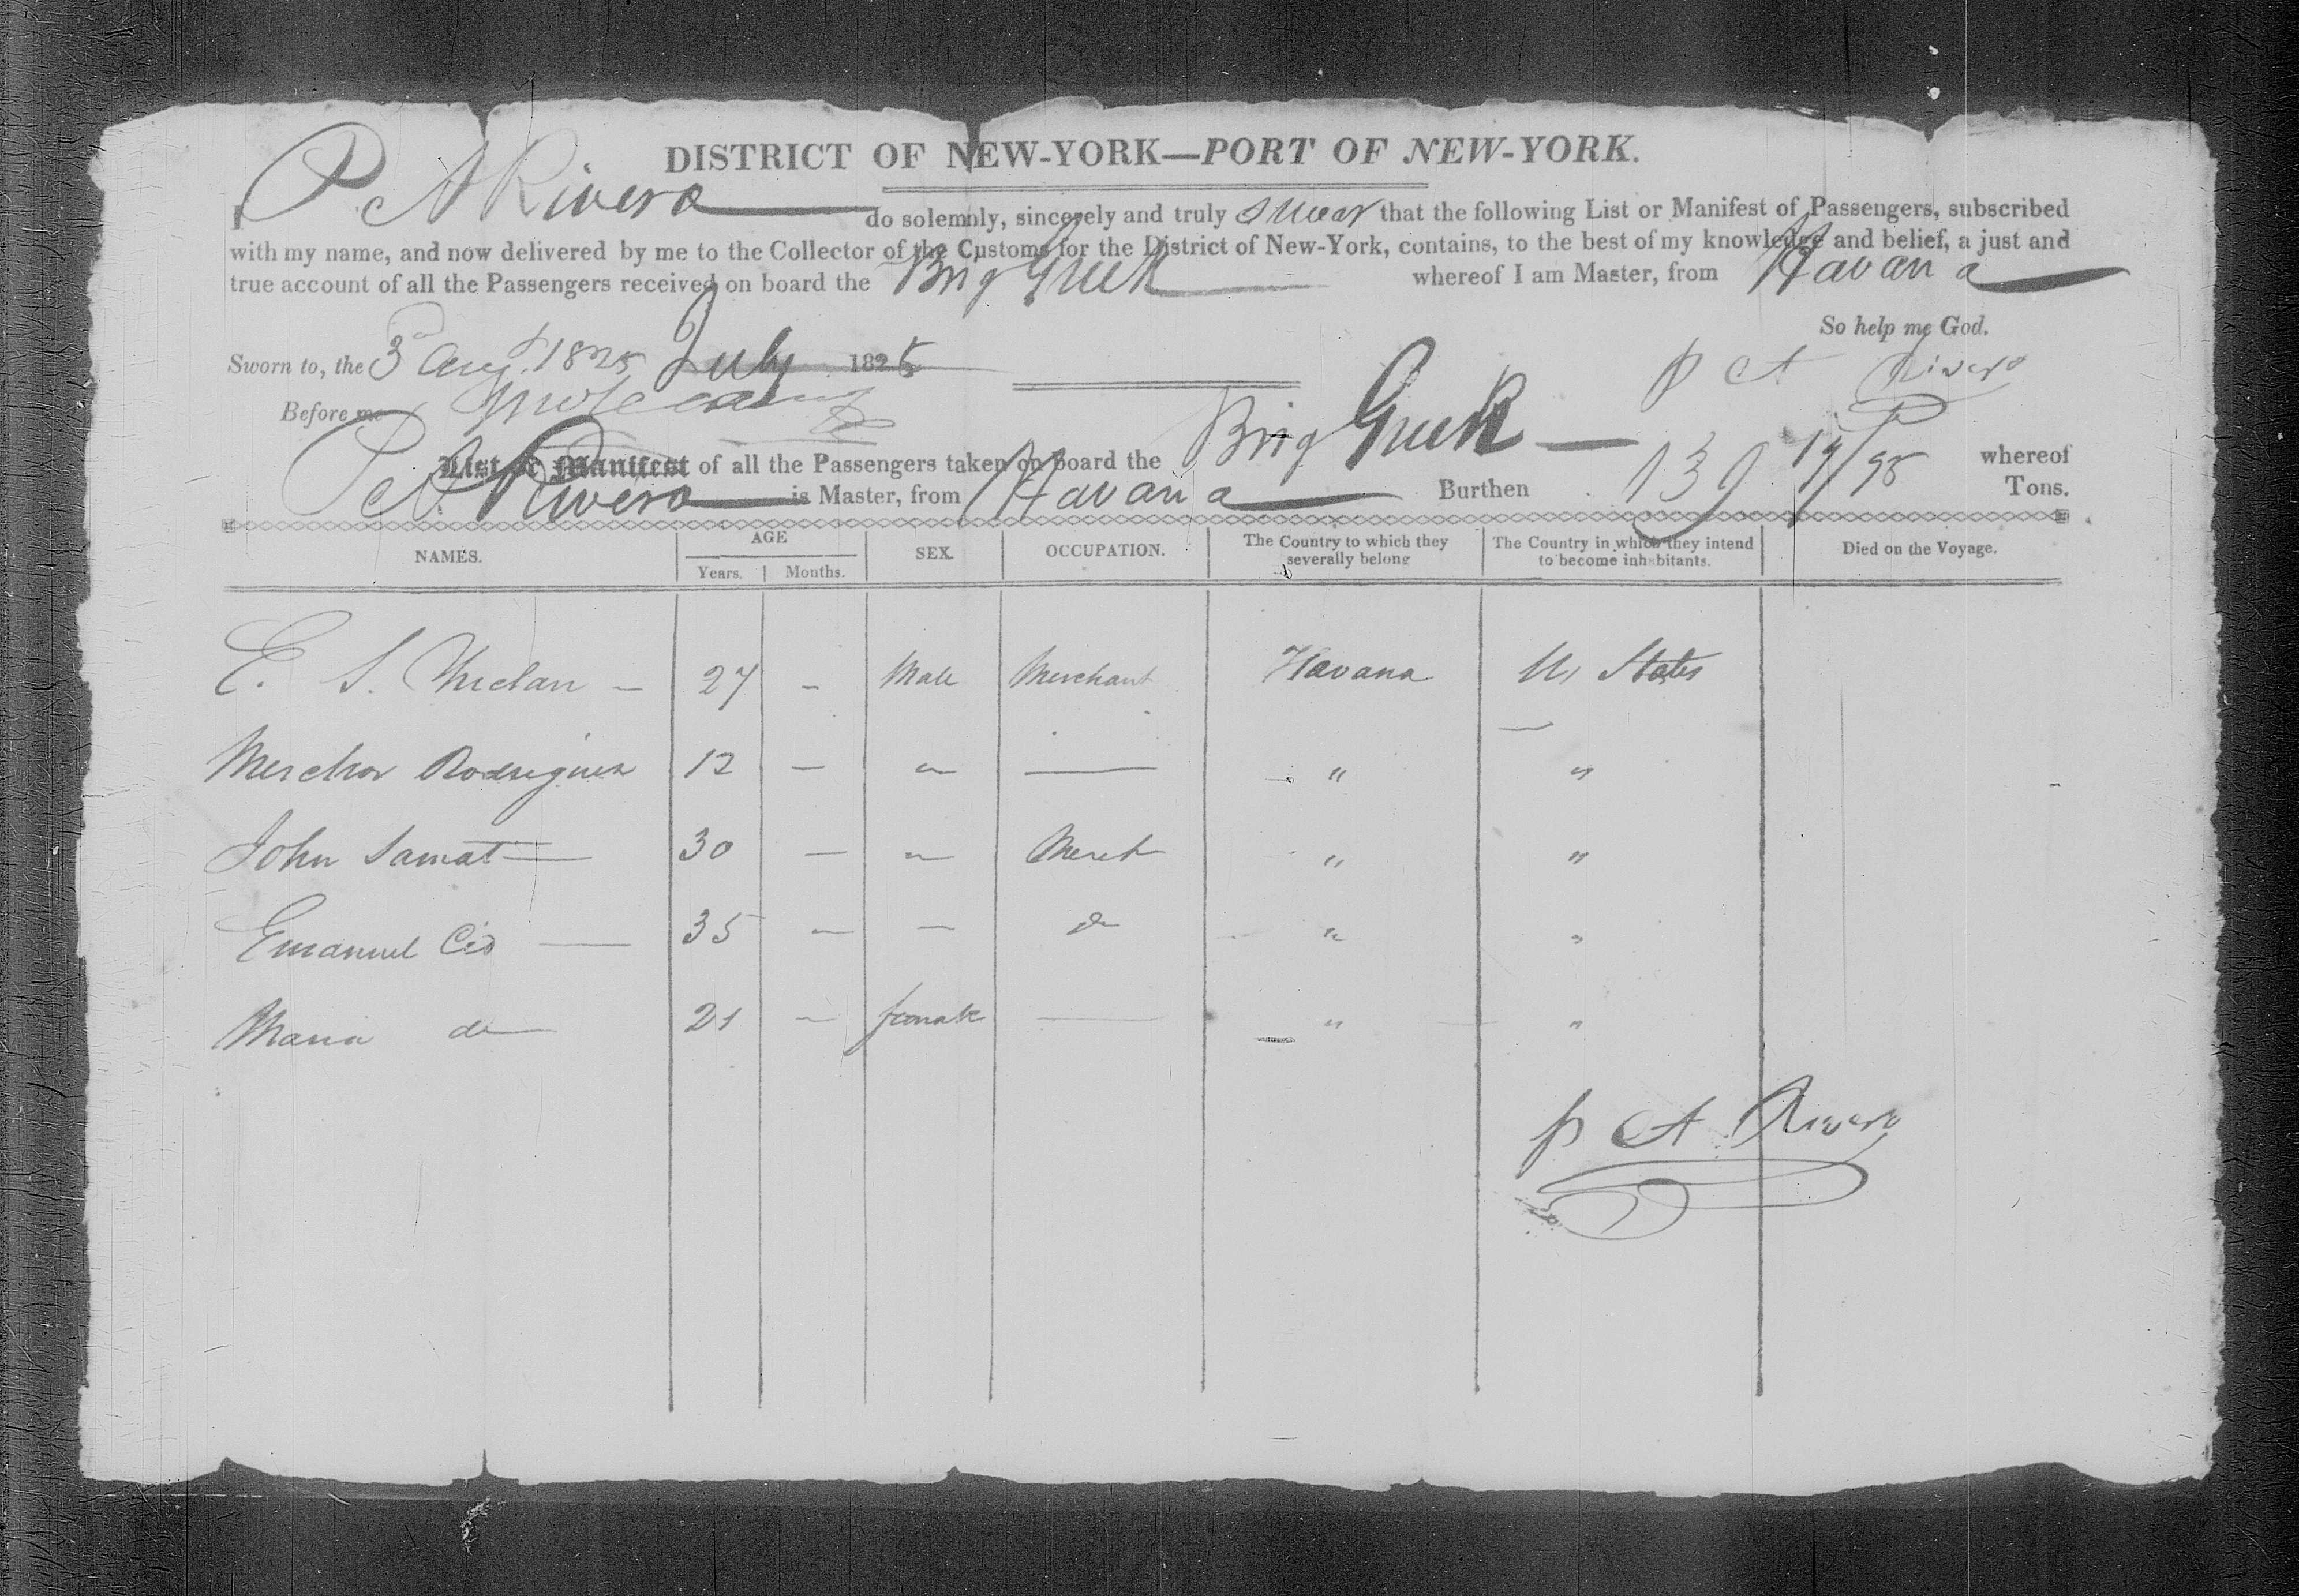 DISTRICT OF NEW-YORK—PORT OF NEW-YORK.
I P A Rivero do solemnly, sincerely and truly swear that the following List or Manifest of Passengers, subscribed
with my name, and now delivered by me to the Collector of the Customs for the District of New-York, contains, to the best of my knowledge and belief, a just and
true account of all the Passengers received on board the Brig Greek whereof I am Master, from Havana
So help me God.
Sworn to, the 3 Aug. 1825 July 1825
P A Rivero
Before me
List or Manifest of all the Passengers taken on board the Brig Greek whereof
P A. Rivero is Master, from Havana Burthen 139 19/95 Tons.
NAMES. AGE SEX. OCCUPATION. The Country to which they severally belong The Country in which they intend to become inhabitants. Died on the Voyage.
Years. Months.
E. S. — 27 – Male Merchant Havana U. States
Merchor Rodriguez 12 — " — " "
John Samat — 30 — " Merch " "
Emanuel Cid — 35 — — do " "
Maria do — 21 — female — " "
P A. Rivero